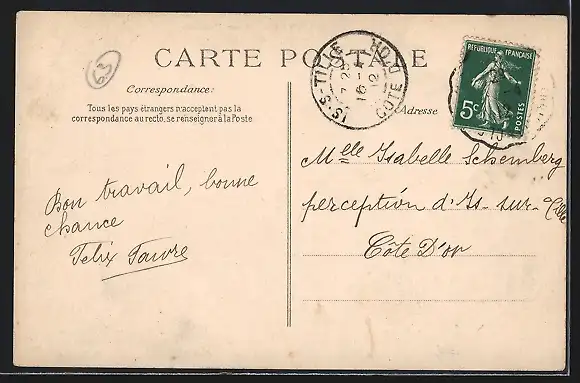 63
CARTE POSTALE
Correspondance:
Tous les pays étrangers n'acceptent pas la
correspondance au recto, se renseigner à la Poste
Adresse
IS-S-TILLE
7 25
16 - 1
12
COTE D'OR
REPUBLIQUE FRANÇAISE
5c
POSTES
Bon travail, bonne
chance
Felix Faivre
Melle Isabelle Schemberg
perception d'Is-sur-Tille
Côte D'or